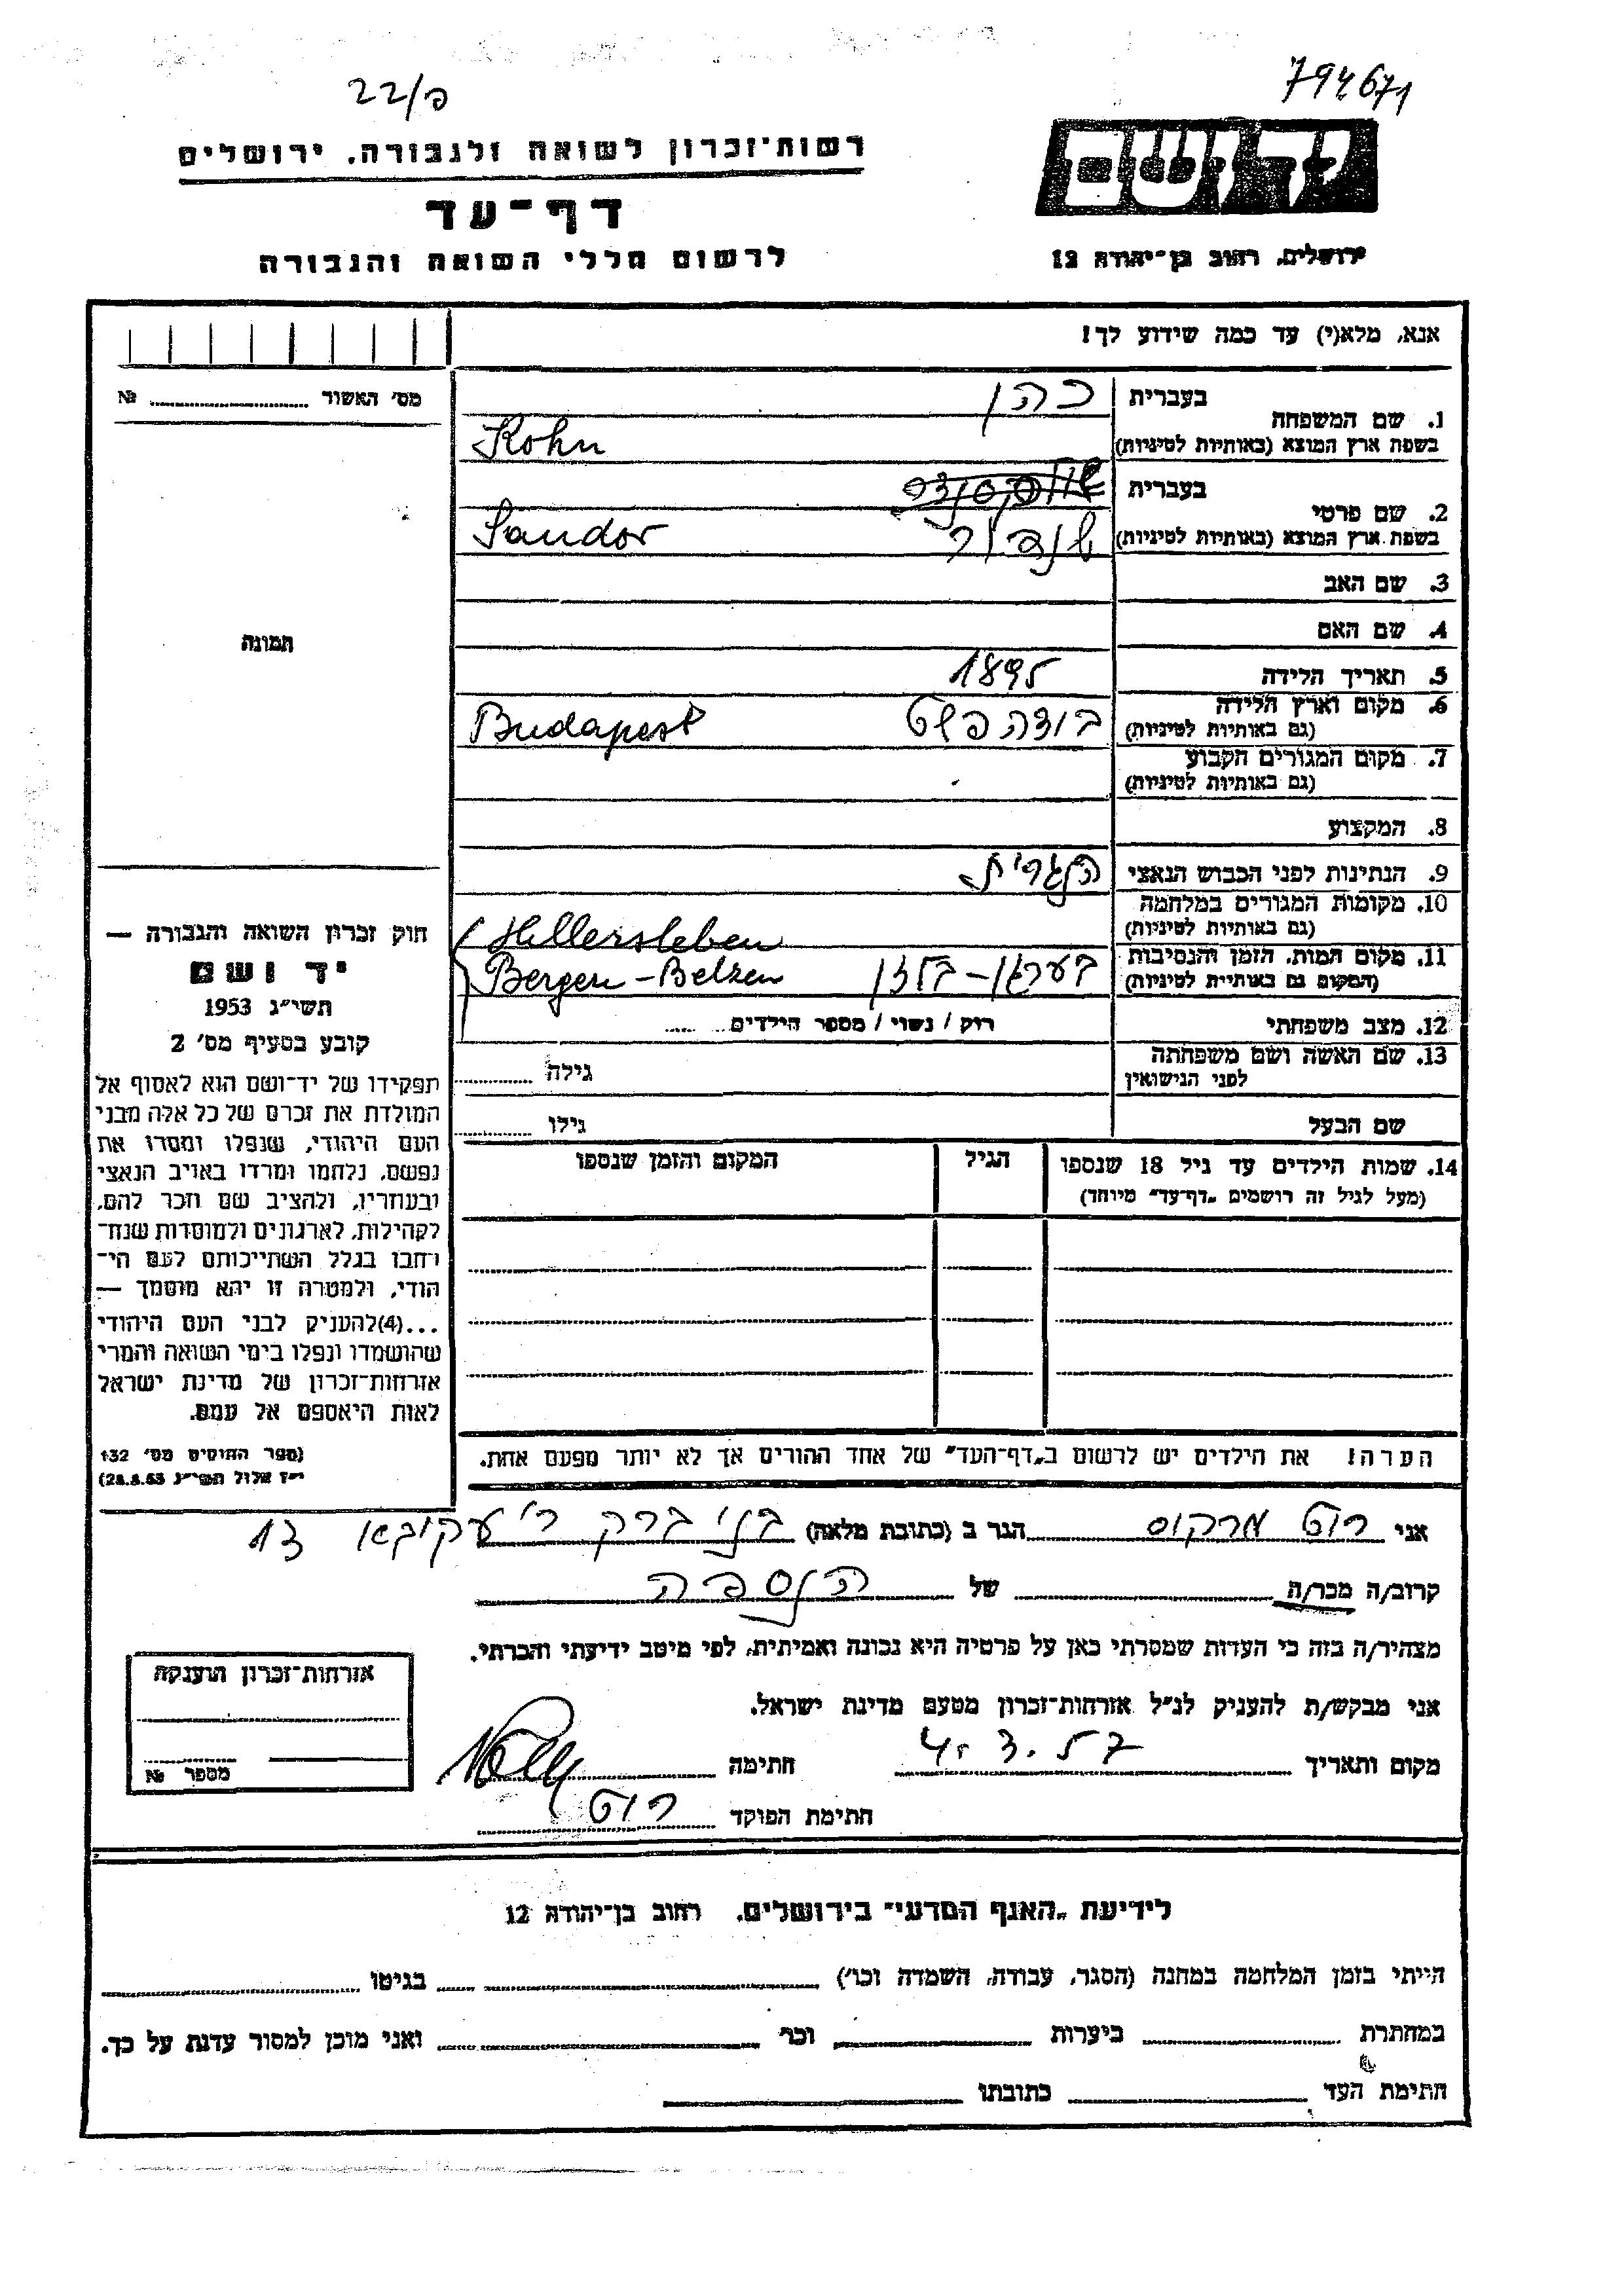 22/פ
794671
רשות־זכרון לשואה ולגבורה, ירושלים
יד ושם
דף־עד
לרשום חללי השואה והגבורה
ירושלים, רחוב בן־יהודה 12
אנא, מלא(י) עד כמה שידוע לך!
מס׳ האשור № 
1. שם המשפחה
בעברית כהן
בשפת ארץ המוצא (באותיות לטיניות) Kohn
2. שם פרטי
בעברית
בשפת ארץ המוצא (באותיות לטיניות) שנדור Sandor
3. שם האב
4. שם האם
תמונה
5. תאריך הלידה 1895
6. מקום וארץ הלידה
(גם באותיות לטיניות) בודהפשט Budapest
7. מקום המגורים הקבוע
(גם באותיות לטיניות)
8. המקצוע
9. הנתינות לפני הכבוש הנאצי הונגרית
10. מקומות המגורים במלחמה
(גם באותיות לטיניות) Hillersleben
11. מקום המות, הזמן והנסיבות
(המקום גם באותיות לטיניות) בערגן-בלזן Bergen-Belzen
12. מצב משפחתי רוק / נשוי / מספר הילדים
13. שם האשה ושם משפחתה
לפני הנישואין גילה
שם הבעל גילו
14. שמות הילדים עד גיל 18 שנספו הגיל המקום והזמן שנספו
(מעל לגיל זה רושמים „דף־עד״ מיוחד)
הערה! את הילדים יש לרשום ב„דף־העד״ של אחד ההורים אך לא יותר מפעם אחת.
חוק זכרון השואה והגבורה —
יד ושם
תשי״ג 1953
קובע בסעיף מס׳ 2
תפקידו של יד־ושם הוא לאסוף אל
המולדת את זכרם של כל אלה מבני
העם היהודי, שנפלו ומסרו את
נפשם, נלחמו ומרדו באויב הנאצי
ובעוזריו, ולהציב שם וזכר להם,
לקהילות, לארגונים ולמוסדות שנח־
רחבו בגלל השתייכותם לעם הי־
הודי, ולמטרה זו יהא מוסמך —
...(4)להעניק לבני העם היהודי
שהושמדו ונפלו בימי השואה והמרי
אזרחות־זכרון של מדינת ישראל
לאות היאספם אל עמם.
(ספר החוקים מס׳ 132
י״ז אלול תשי״ג 28.8.53)
אני רוט מרקוס הגר ב (כתובת מלאה) בני ברק ר׳ עקיבא 13
קרוב/ה מכר/ה של הנספה
מצהיר/ה בזה כי העדות שמסרתי כאן על פרטיה היא נכונה ואמיתית, לפי מיטב ידיעתי והכרתי.
אני מבקש/ת להעניק לנ״ל אזרחות־זכרון מטעם מדינת ישראל.
מקום ותאריך 4. 3. 57 חתימה
חתימת הפוקד רוט
אזרחות־זכרון הוענקה
מספר №
לידיעת „האגף המדעי״ בירושלים, רחוב בן־יהודה 12
הייתי בזמן המלחמה במחנה (הסגר, עבודה, השמדה וכו׳) בגיטו
במחתרת ביערות וכו׳ ואני מוכן למסור עדות על כך.
חתימת העד כתובתו